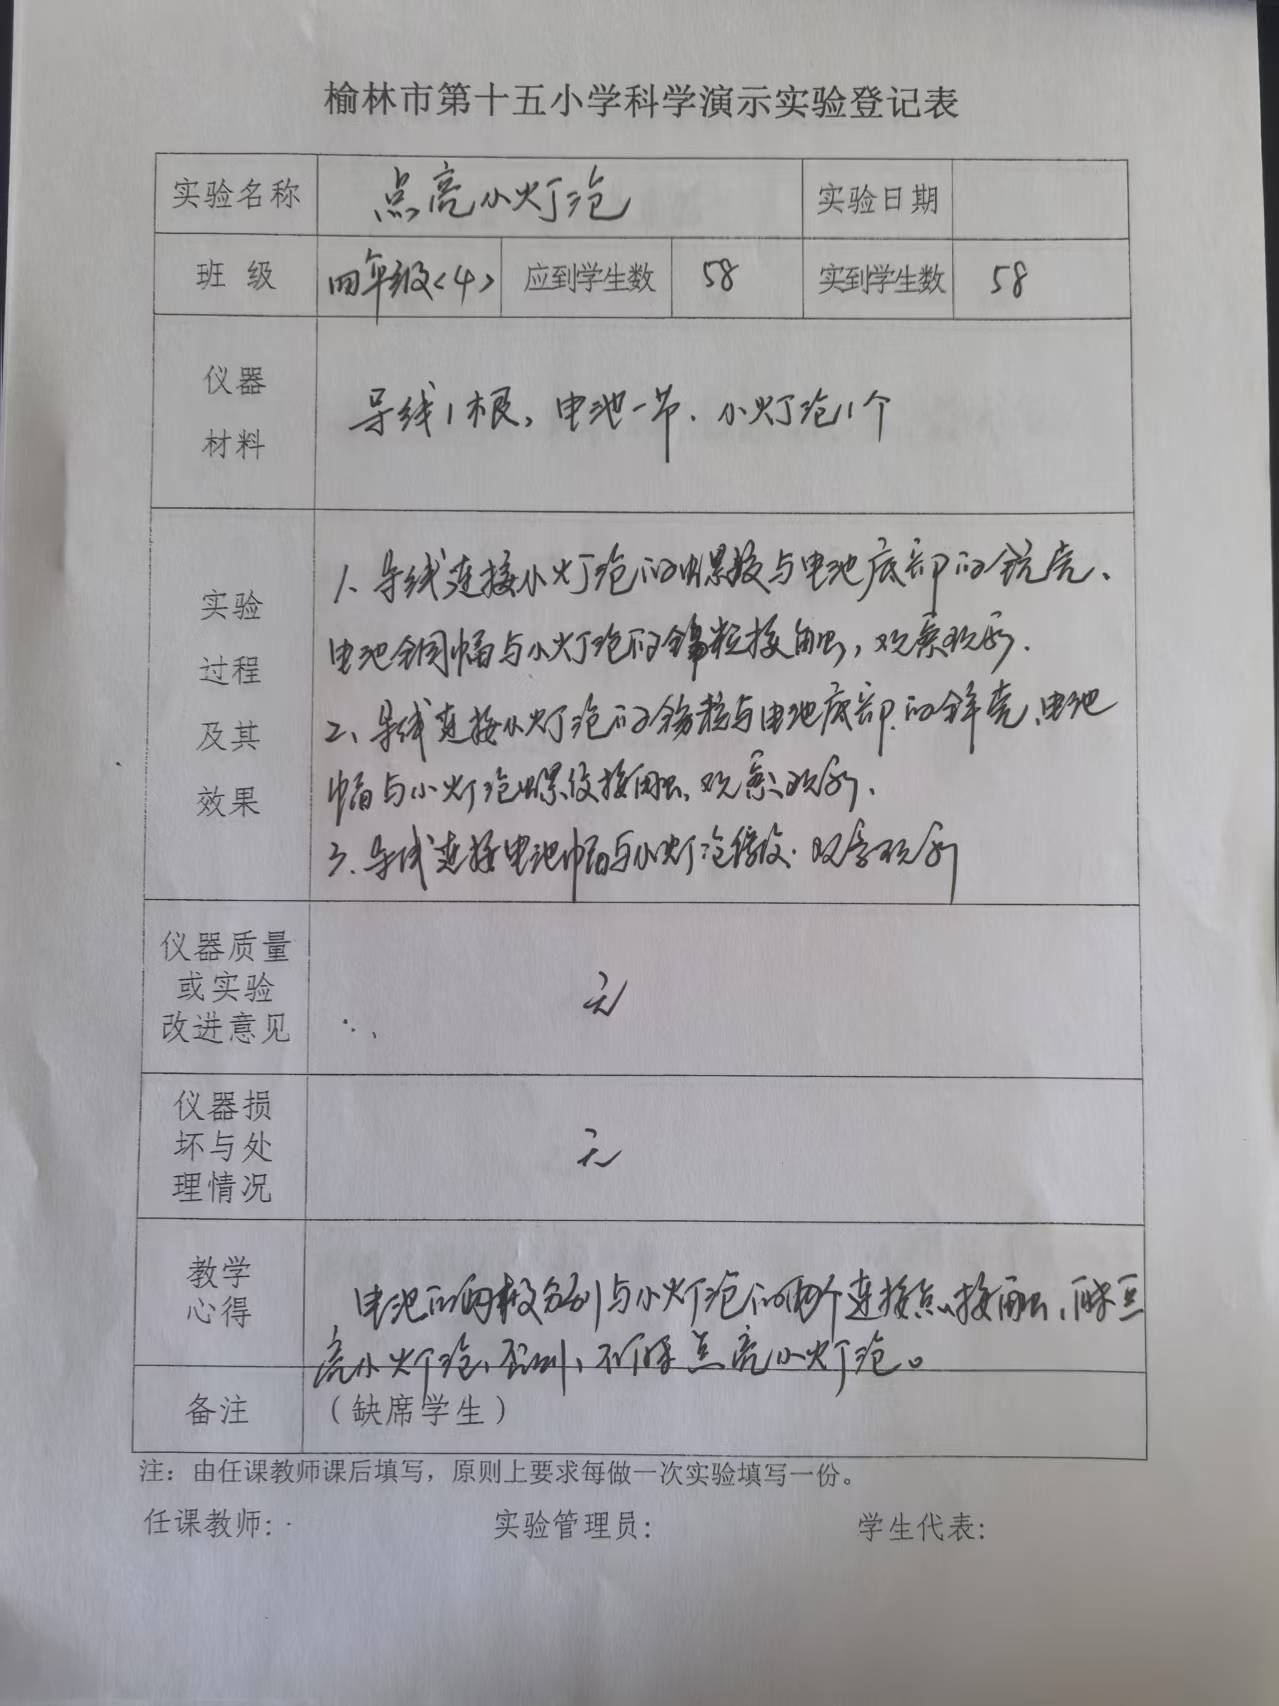 榆林市第十五小学科学演示实验登记表
实验名称 点亮小灯泡 实验日期
班 级 四年级<4> 应到学生数 58 实到学生数 58
仪器
材料
导线1根,电池一节.小灯泡1个
实验
过程
及其
效果
1、导线连接小灯泡的螺纹与电池底部的锌壳、
电池铜帽与小灯泡的锡粒接触,观察现象.
2、导线连接小灯泡的锡粒与电池底部的锌壳、电池
帽与小灯泡螺纹接触,观察现象.
3、导线连接电池帽与小灯泡螺纹.观察现象
仪器质量
或实验
改进意见
无
仪器损
坏与处
理情况
无
教学
心得
电池的两极分别与小灯泡的两个连接点接触,能点
亮小灯泡,否则,不能点亮小灯泡。
备注 (缺席学生)
注:由任课教师课后填写,原则上要求每做一次实验填写一份。
任课教师: 实验管理员: 学生代表: